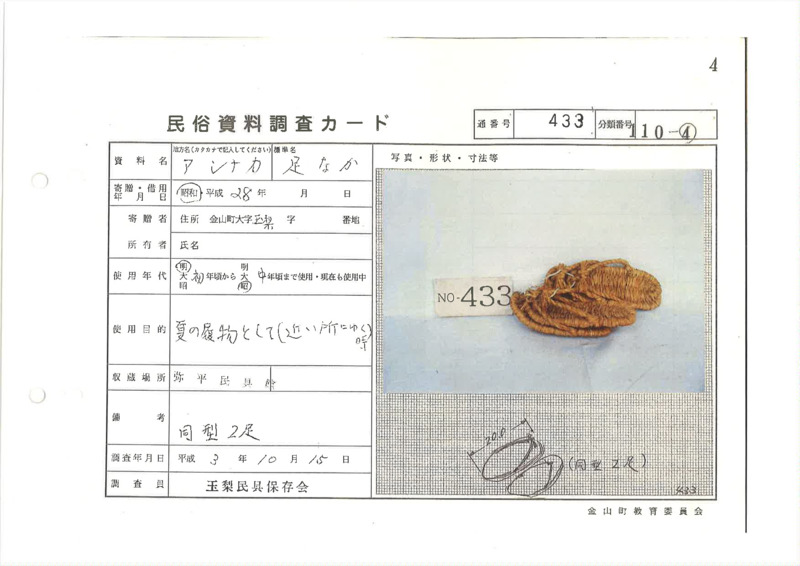 4
民俗資料調査カード
通番号 433 分類番号 110-④
資料名 地方名(カタカナで記入してください) アシナカ 標準名 足なか
写真・形状・寸法等
寄贈・借用年月日 昭和・平成 28年 月 日
寄贈者 住所 金山町大字玉梨 字 番地
所有者 氏名
使用年代 明大昭 初年頃から 明大昭 中年頃まで使用・現在も使用中
使用目的 夏の履物として(近い所にゆく時
収蔵場所 弥平民具
備考 同型2足
調査年月日 平成 3年 10月 15日
調査員 玉梨民具保存会
NO-433
20.0
(同型2足)
433
金山町教育委員会